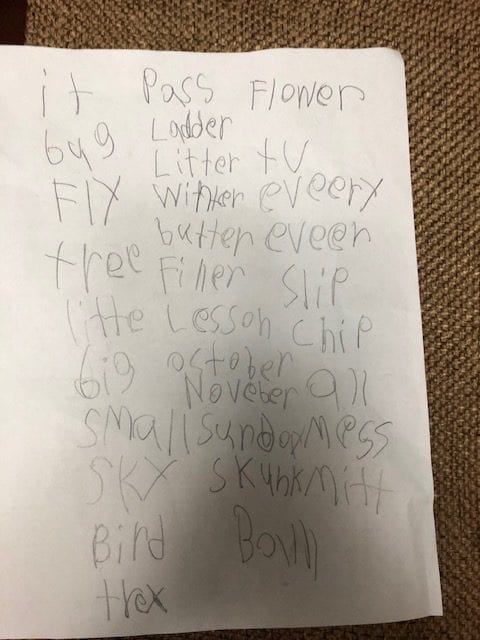 it Pass Flower
bug Ladder
Litter tv
FLY eveery
butter eveer
tree Filler Slip
little Lesson chip
big october all
Noveber
smallsundayMess
SKY skunk Mitt
Bird Ball
trex